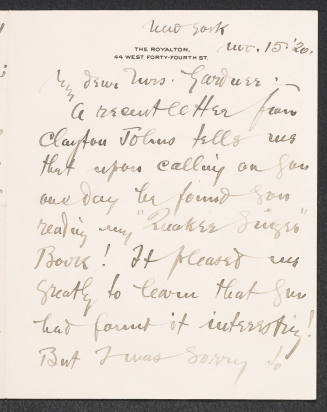 New York
THE ROYALTON,
44 WEST FORTY-FOURTH ST.
Nov. 15 '20.
My dear Mrs. Gardner:
A recent letter from
Clayton Johns tells me
that upon calling on you
one day he found you
reading my "Quaker Singer"
Book! It pleased me
greatly to learn that you
had found it interesting!
But I was sorry to